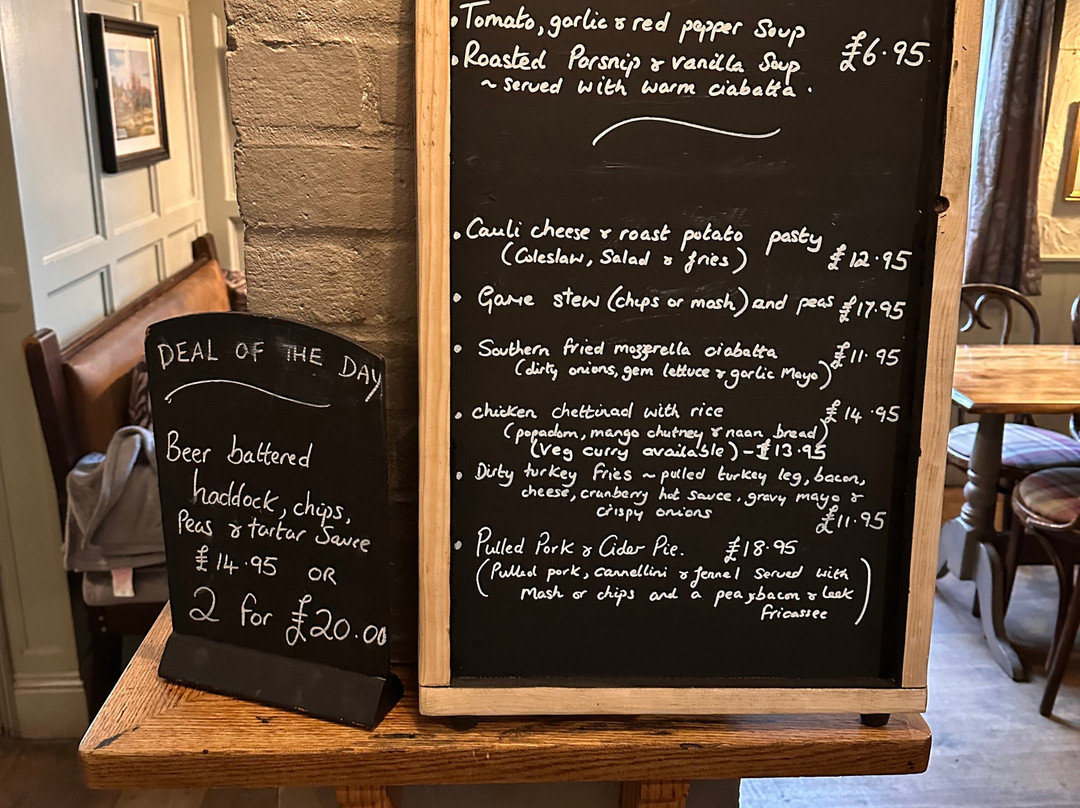 DEAL OF THE DAY
Beer battered
haddock, chips,
Peas & tartar Sauce
£14.95 OR
2 for £20.00
• Tomato, garlic & red pepper Soup
• Roasted Parsnip & vanilla Soup £6.95
~ served with warm ciabatta .
• Cauli cheese & roast potato pasty
(Coleslaw, Salad & fries) £12.95
• Game stew (chips or mash) and peas £17.95
• Southern fried mozzerella ciabatta £11.95
(dirty onions, gem lettuce & garlic Mayo)
• chicken chettinad with rice £14.95
(popadom, mango chutney & naan bread)
(Veg curry available) - £13.95
• Dirty turkey fries ~ pulled turkey leg, bacon,
cheese, cranberry hot sauce, gravy mayo &
crispy onions
£11.95
• Pulled Pork & Cider Pie. £18.95
(Pulled pork, cannellini & fennel served with
Mash or chips and a pea, bacon & leek
fricassee)